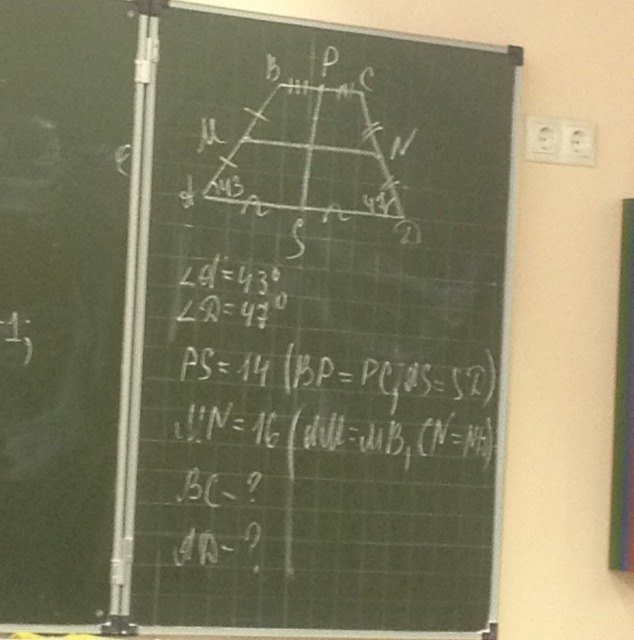 P
B C
M N
A 43 47 D
S
∠A = 43°
∠D = 47°
PS = 14 (BP = PC, AS = SD)
MN = 16 (AM = MB, CN = ND)
BC - ?
AD - ?
-1;